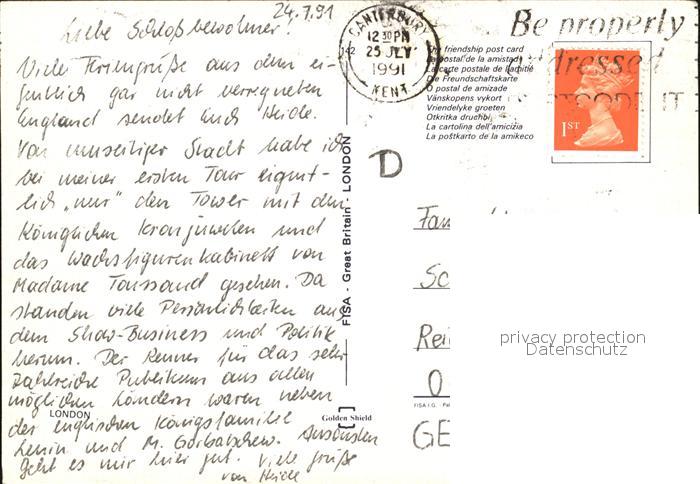 24.7.91
Liebe Schloßbewohner!
Viele Feriengrüße aus dem ei-
gentlich gar nicht verregneten
England sendet Euch Heide.
Von umseitiger Stadt habe ich
bei meiner ersten Tour eigent-
lich „nur" den Tower mit den
Königlichen Kronjuwelen und
das Wachsfigurenkabinett von
Madame Toussand gesehen. Da
standen viele Persönlichkeiten aus
dem Show-Business und Politik
herum. Der Renner für das sehr
zahlreiche Publikum aus allen
möglichen Ländern waren neben
der englischen Königsfamilie
Lenin und M. Gorbatschow. Ansonsten
geht es mir hier gut. Viele Grüße
von Heide
LONDON
142
FISA - Great Britain - LONDON
Golden Shield
CANTERBURY
12 30 PM
25 JLY
1991
KENT
Be properly
addressed
POSTCODE IT
The friendship post card
La postal de la amistad
La carte postale de l'amitié
Die Freundschaftskarte
O postal de amizade
Vänskopens vykort
Vriendelyke groeten
Otkritka druchbi
La cartolina dell'amicizia
La poŝtkarto de la amikeco
1ST
D
Fam
Sc
Rei
O
FISA I.G.
GE
privacy protection
Datenschutz